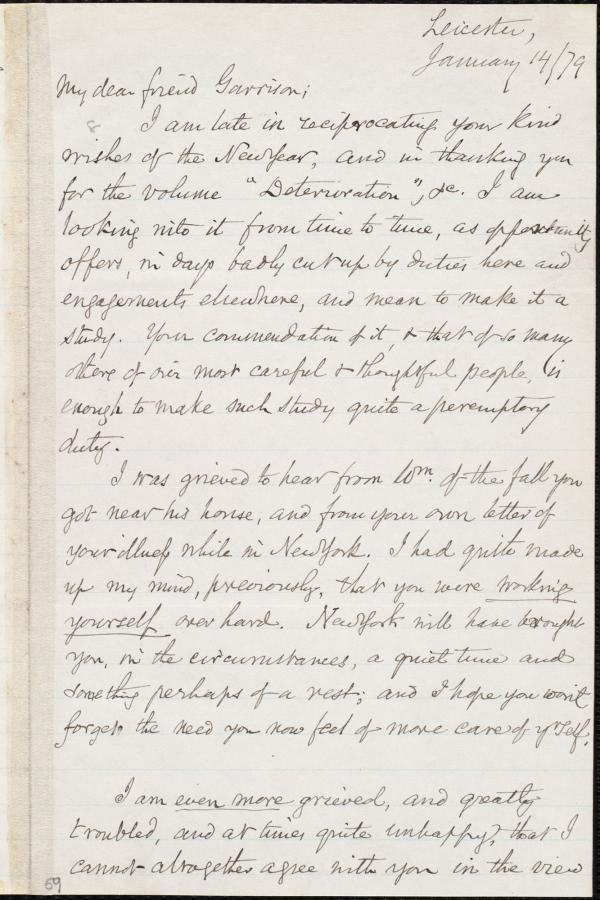 Leicester,
January 14/79
My dear friend Garrison;
8
I am late in reciprocating your kind
wishes of the New Year, and in thanking you
for the volume "Deterioration", &c. I am
looking into it from time to time, as opportunity
offers, in days badly cut up by duties here and
engagements elsewhere, and mean to make it a
study. Your commendation of it, & that of so many
others of our most careful & thoughtful people, is
enough to make such study quite a peremptory
duty.
I was grieved to hear from Wm. of the fall you
got near his house, and from your own letter of
your illness while in New York. I had quite made
up my mind, previously, that you were working
yourself over hard. New York will have brought
you, in the circumstances, a quiet time and
something perhaps of a rest; and I hope you won't
forget the need you now feel of more care of yrself.
I am even more grieved, and greatly
troubled, and at times quite unhappy, that I
cannot altogether agree with you in the view
69